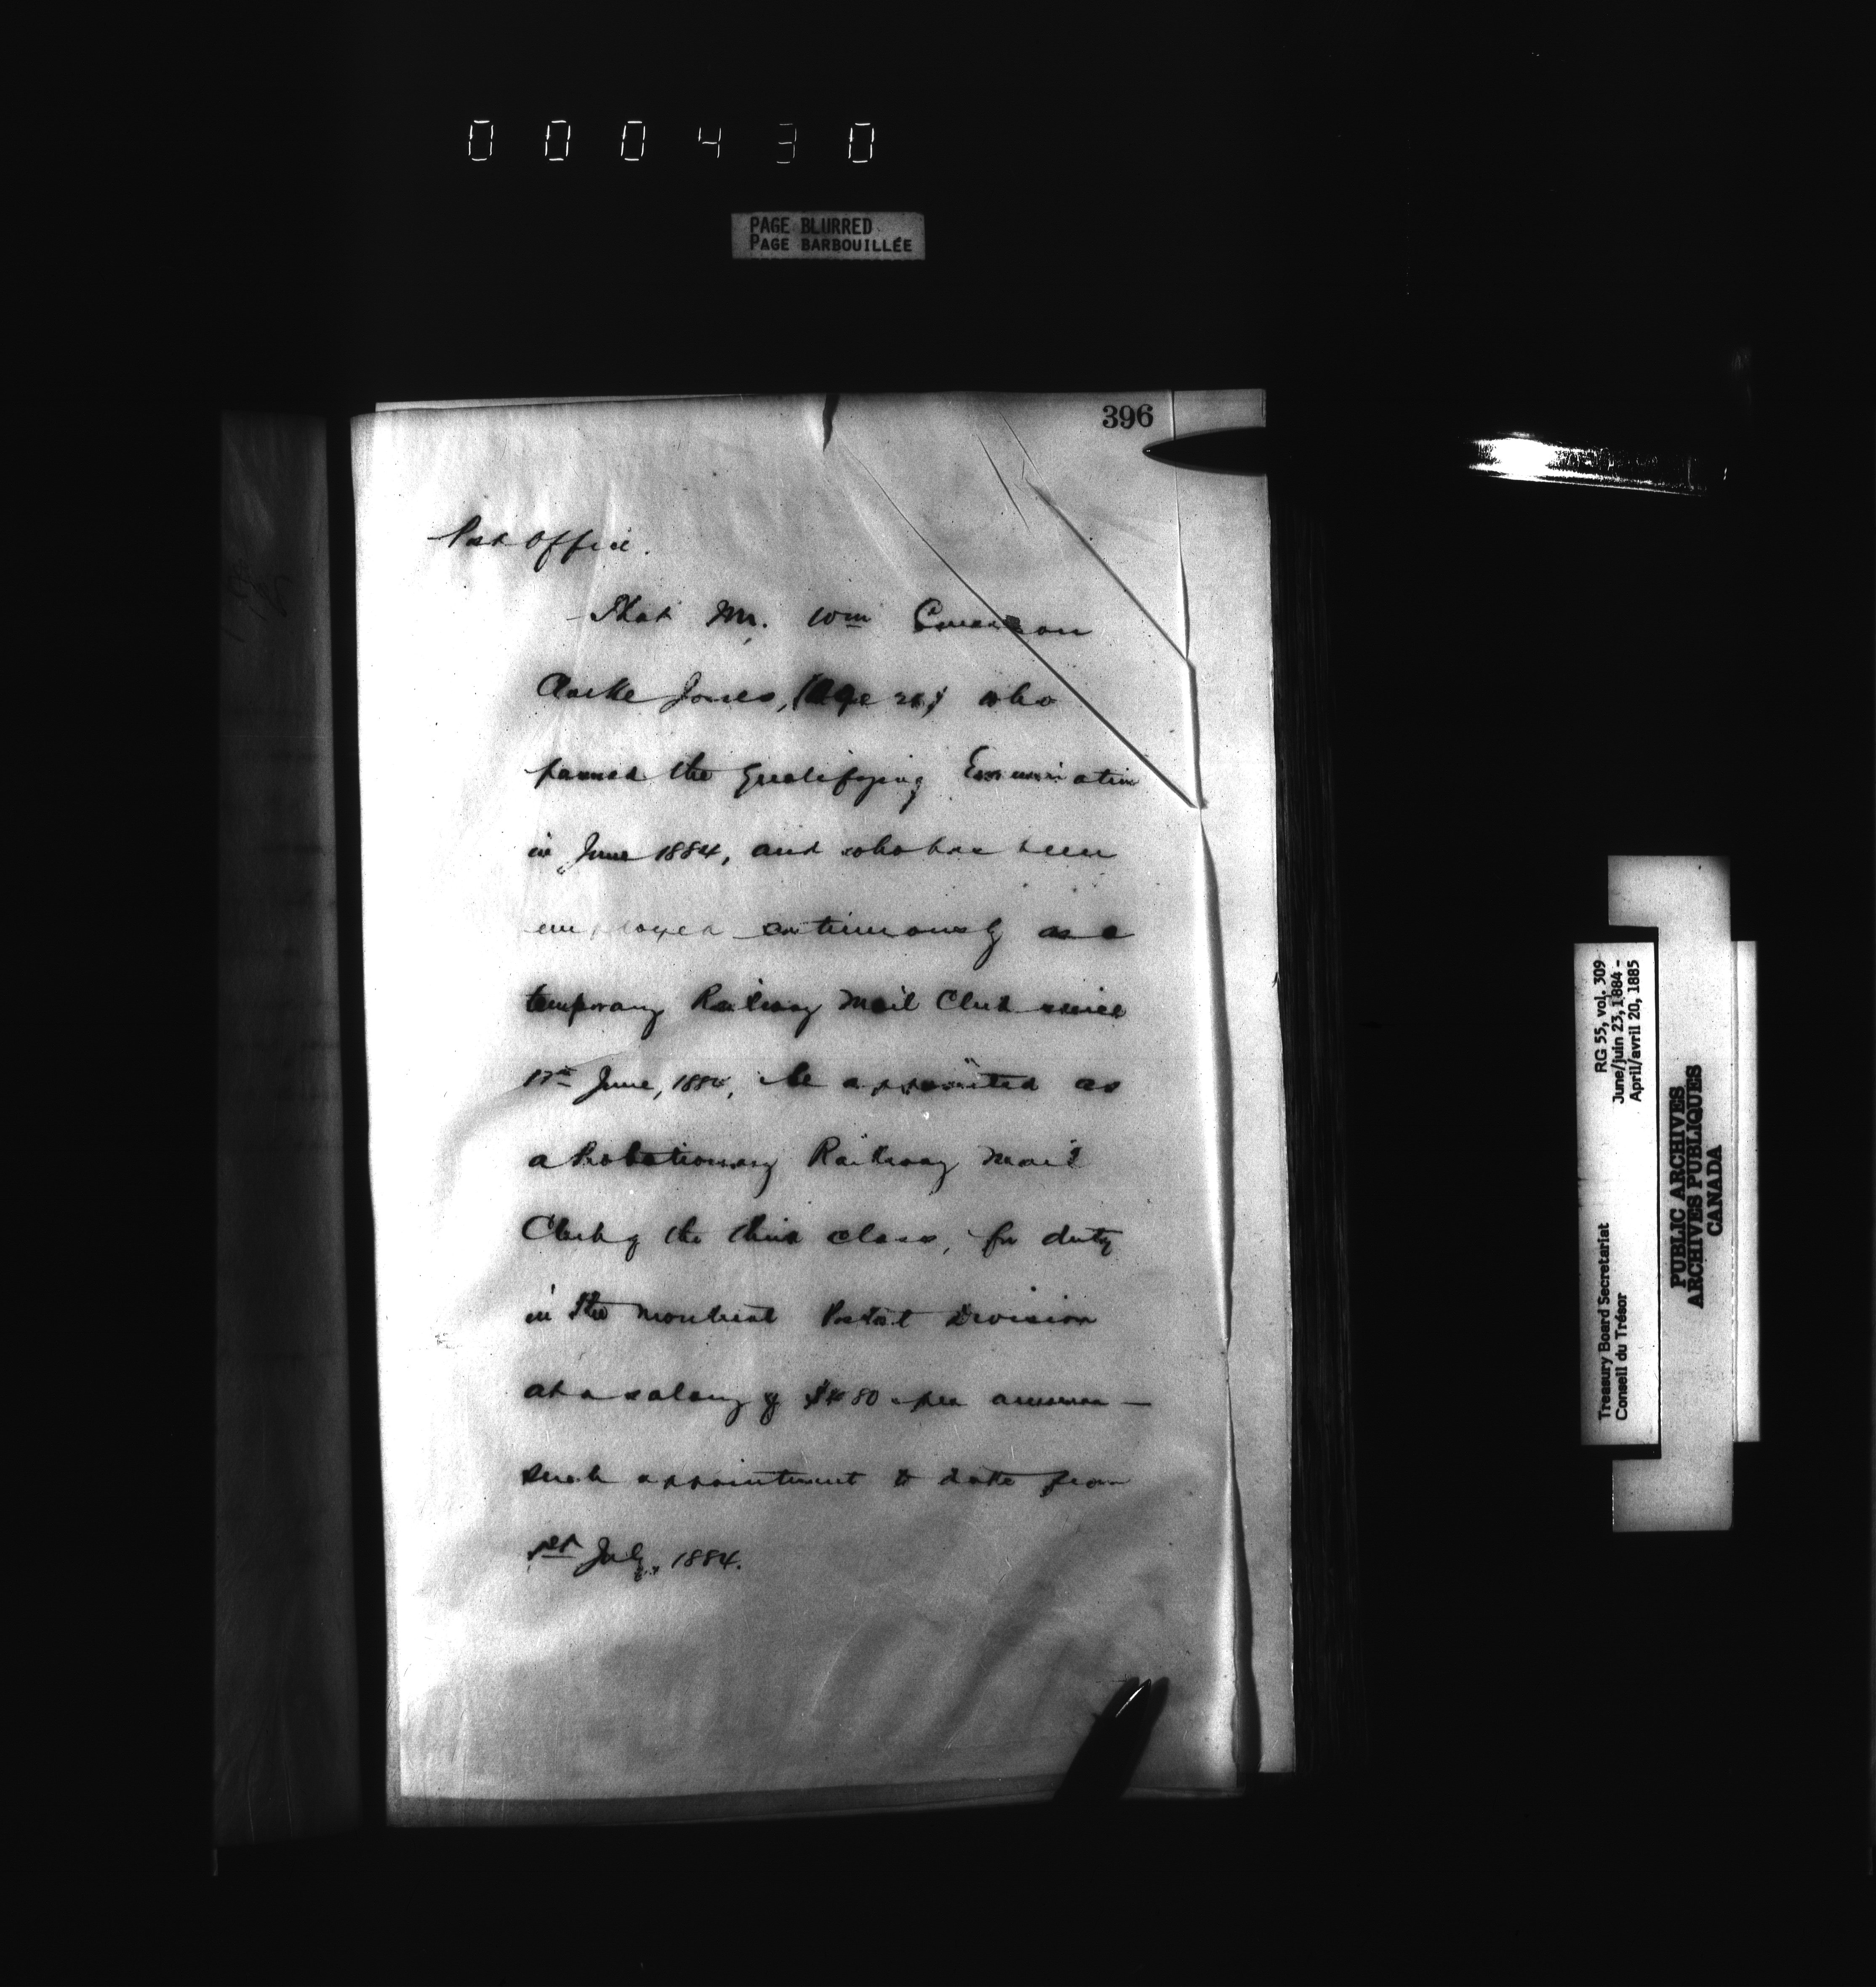 000430
PAGE BLURRED
PAGE BARBOUILLÉE
396
Post Office.
That Mr. Wm
Clarke Jones, (Age 26) who
passed the Qualifying Examination
in June 1884, and who has been
employed continuously as a
temporary Railway Mail Clerk since
17th June, 1884, be appointed as
a Probationary Railway Mail
Clerk of the third class, for duty
in the Montreal Postal Division
at a salary of $480 per annum —
such appointment to date from
1st July, 1884.
RG 55, vol. 309
June/juin 23, 1884 -
April/avril 20, 1885
Treasury Board Secretariat
Conseil du Trésor
PUBLIC ARCHIVES
ARCHIVES PUBLIQUES
CANADA